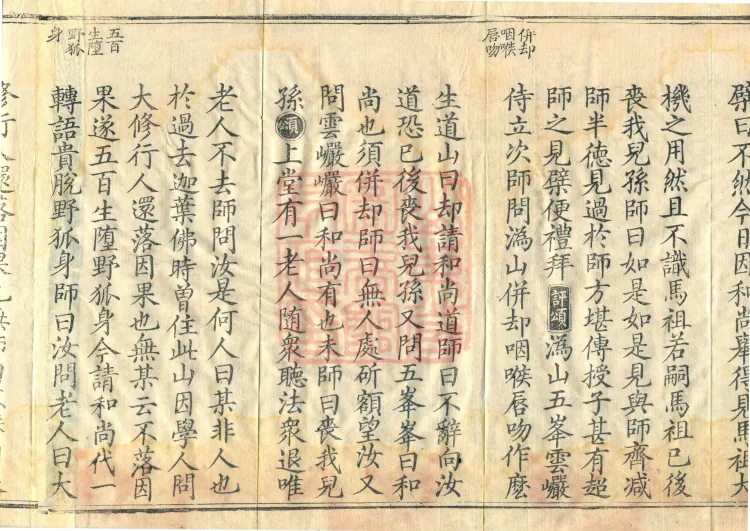 檗曰不然今日因和尚舉得見馬祖大
機之用然且不識馬祖若嗣馬祖已後
喪我兒孫師曰如是如是見與師齊減
師半德見過於師方堪傳授子甚有超
師之見檗便禮拜評頌溈山五峯雲巖
併却
咽喉
唇吻
侍立次師問溈山併却咽喉唇吻作麽
生道山曰却請和尚道師曰不辭向汝
道恐已後喪我兒孫又問五峯峯曰和
尚也須併却師曰無人處斫額望汝又
問雲巖巖曰和尚有也未師曰喪我兒
孫頌上堂有一老人随衆聽法衆退唯
老人不去師問汝是何人曰某非人也
於過去迦葉佛時曽住此山因學人問
大修行人還落因果也無某云不落因
五百
生墮
野狐
身
果遂五百生墮野狐身今請和尚代一
轉語貴脫野狐身師曰汝問老人曰大
修行人還落因果也無師曰